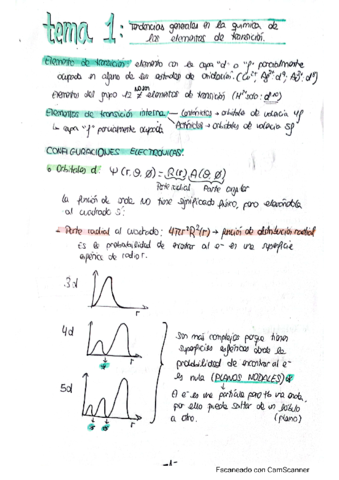 tema 1: Tendencias generales en la química de
los elementos de transición.
Elemento de transición: elemento con la capa "d" o "f" parcialmente
ocupada en alguno de los estados de oxidación.
Elementos del grupo 12 elementos de transición
Elementos de transición interna Lantánidos → orbitales de valencia 4f
la capa "f" parcialmente ocupada Actínidos → orbitales de valencia 5f
CONFIGURACIONES ELECTRÓNICAS:
Orbitales d Ψ(r, θ, ø) = R(r) A(θ, ø)
Parte radial Parte angular
la función de onda no tiene significado físico, pero elevándola
al cuadrado sí:
- Parte radial al cuadrado: 4πr²R²(r) → función de distribución radial
Es la probabilidad de encontrar al e⁻ en una superficie
esférica de radio r.
3d
r
4d
r
5d
r
Son más complejos porque tienen
superficies esféricas donde la
probabilidad de encontrar al e⁻
es nula (PLANOS NODALES)
El e⁻ es una partícula pero tb una onda,
por ello puede saltar de un lóbulo
a otro. (plano)
-1-
Escaneado con CamScanner